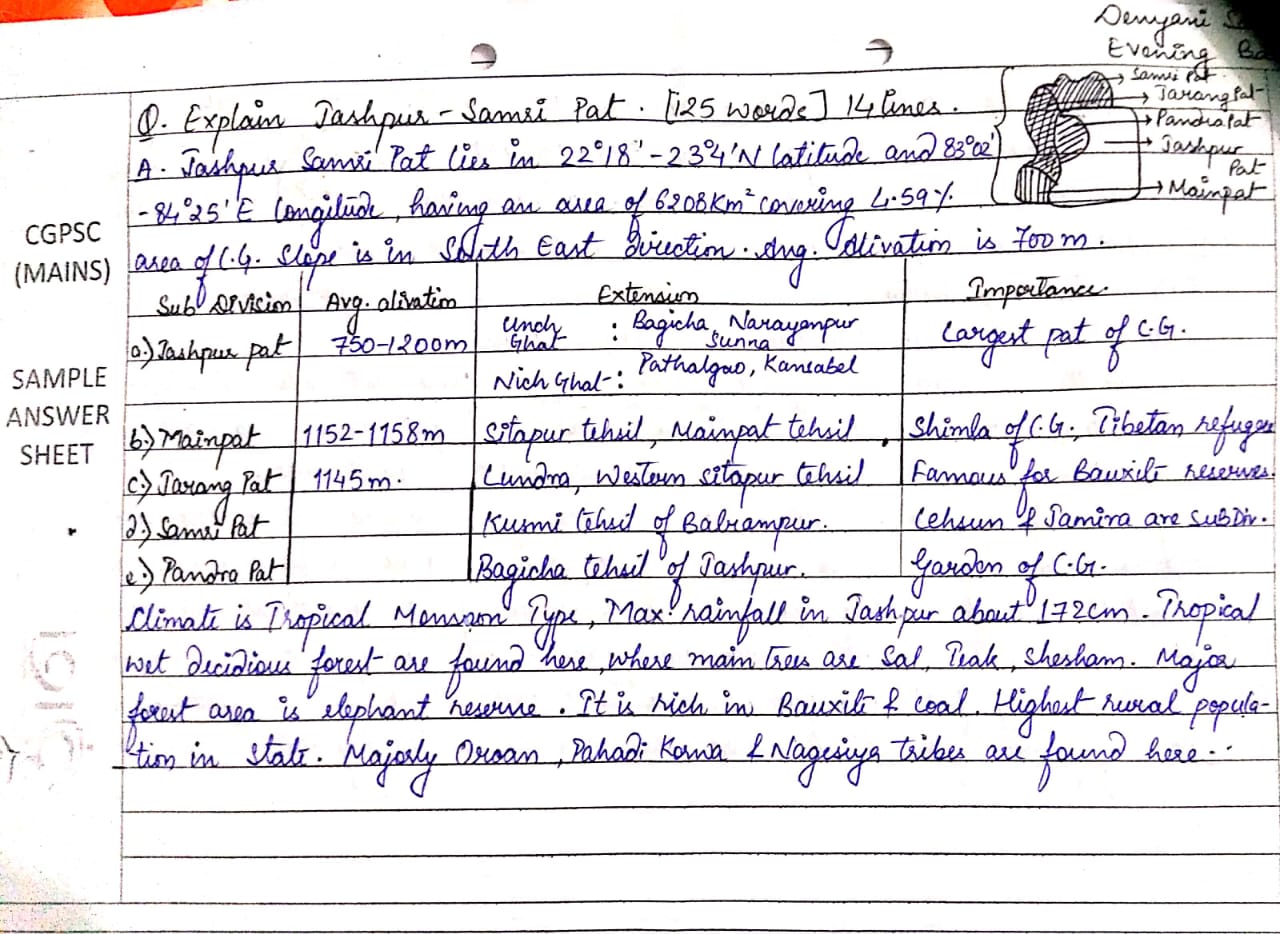 Denyani
Evening
Samri Pat
Jarang Pat
Pandra Pat
Jashpur
Pat
Mainpat
Q. Explain Jashpur - Samri Pat. [125 words] 14 lines.
A. Jashpur Samri Pat lies in 22°18' - 23°4'N latitude and 83°02'
- 84°25' E longitude, having an area of 6208 Km² covering 4.59%
area of C.G. Slope is in South East direction. Avg. Olivation is 700 m.
CGPSC
(MAINS)
SAMPLE
ANSWER
SHEET
Sub Division Avg. olivation Extension Importance.
a.) Jashpur pat 750-1200m Unch Ghat : Bagicha, Narayanpur Sunna Largest pat of C.G.
Nich Ghat : Pathalgao, Kansabel
b.) Mainpat 1152-1158m Sitapur tehsil, Mainpat tehsil . Shimla of C.G., Tibetan refugee
c.) Jarang Pat 1145 m. Lundra, Western sitapur tehsil Famous for Bauxite reserves.
d.) Samri Pat Kusmi tehsil of Balrampur. Lehsun & Jamira are SubDiv.
e.) Pandra Pat Bagicha tehsil of Jashpur. Garden of C.G.
Climate is Tropical Monsoon Type, Max. rainfall in Jashpur about 172cm. Tropical
wet decidious forest are found here, where main trees are Sal, Teak, Shesham. Major
forest area is elephant reserve. It is rich in Bauxite & coal. Highest rural popula-
tion in State. Majorly Oroan, Pahadi Korwa & Nagesiya tribes are found here..